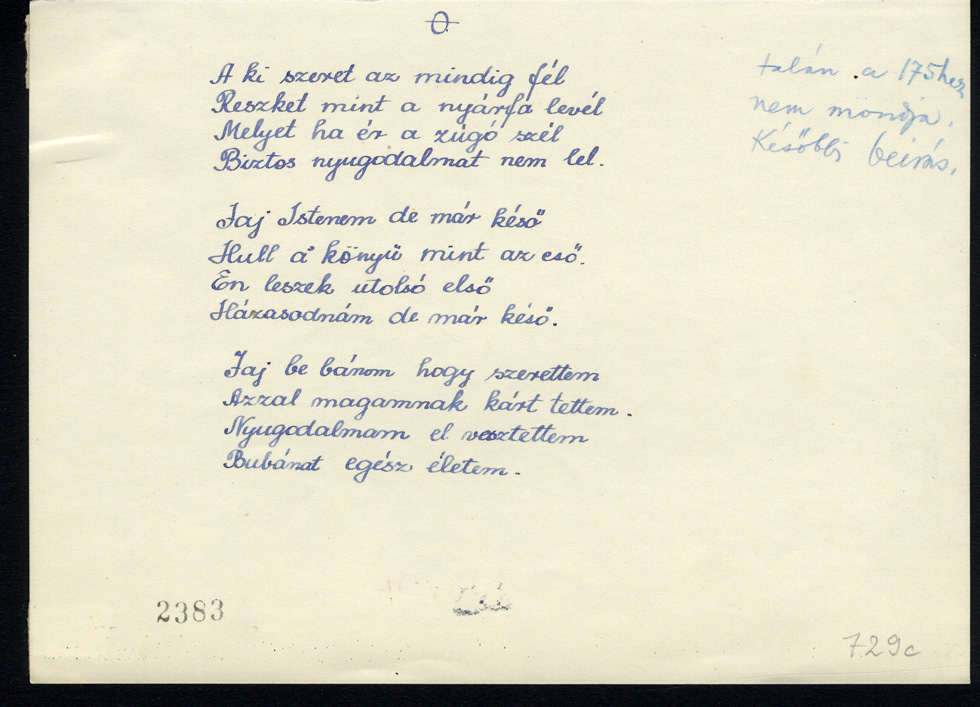 O
A ki szeret az mindig fél
Reszket mint a nyárfa levél
Melyet ha ér a zúgó szél
Biztos nyugodalmat nem lel.
Jaj Istenem de már késő
Hull a könyü mint az eső.
En leszek utolsó első
Házasodnám de már késő.
Jaj be bánom hogy szerettem
Azzal magamnak kárt tettem.
Nyugodalmam el vesztettem
Bubánat egész életem.
talán a 175hez
nem mondja.
Későbbi beirás.
2383
729c